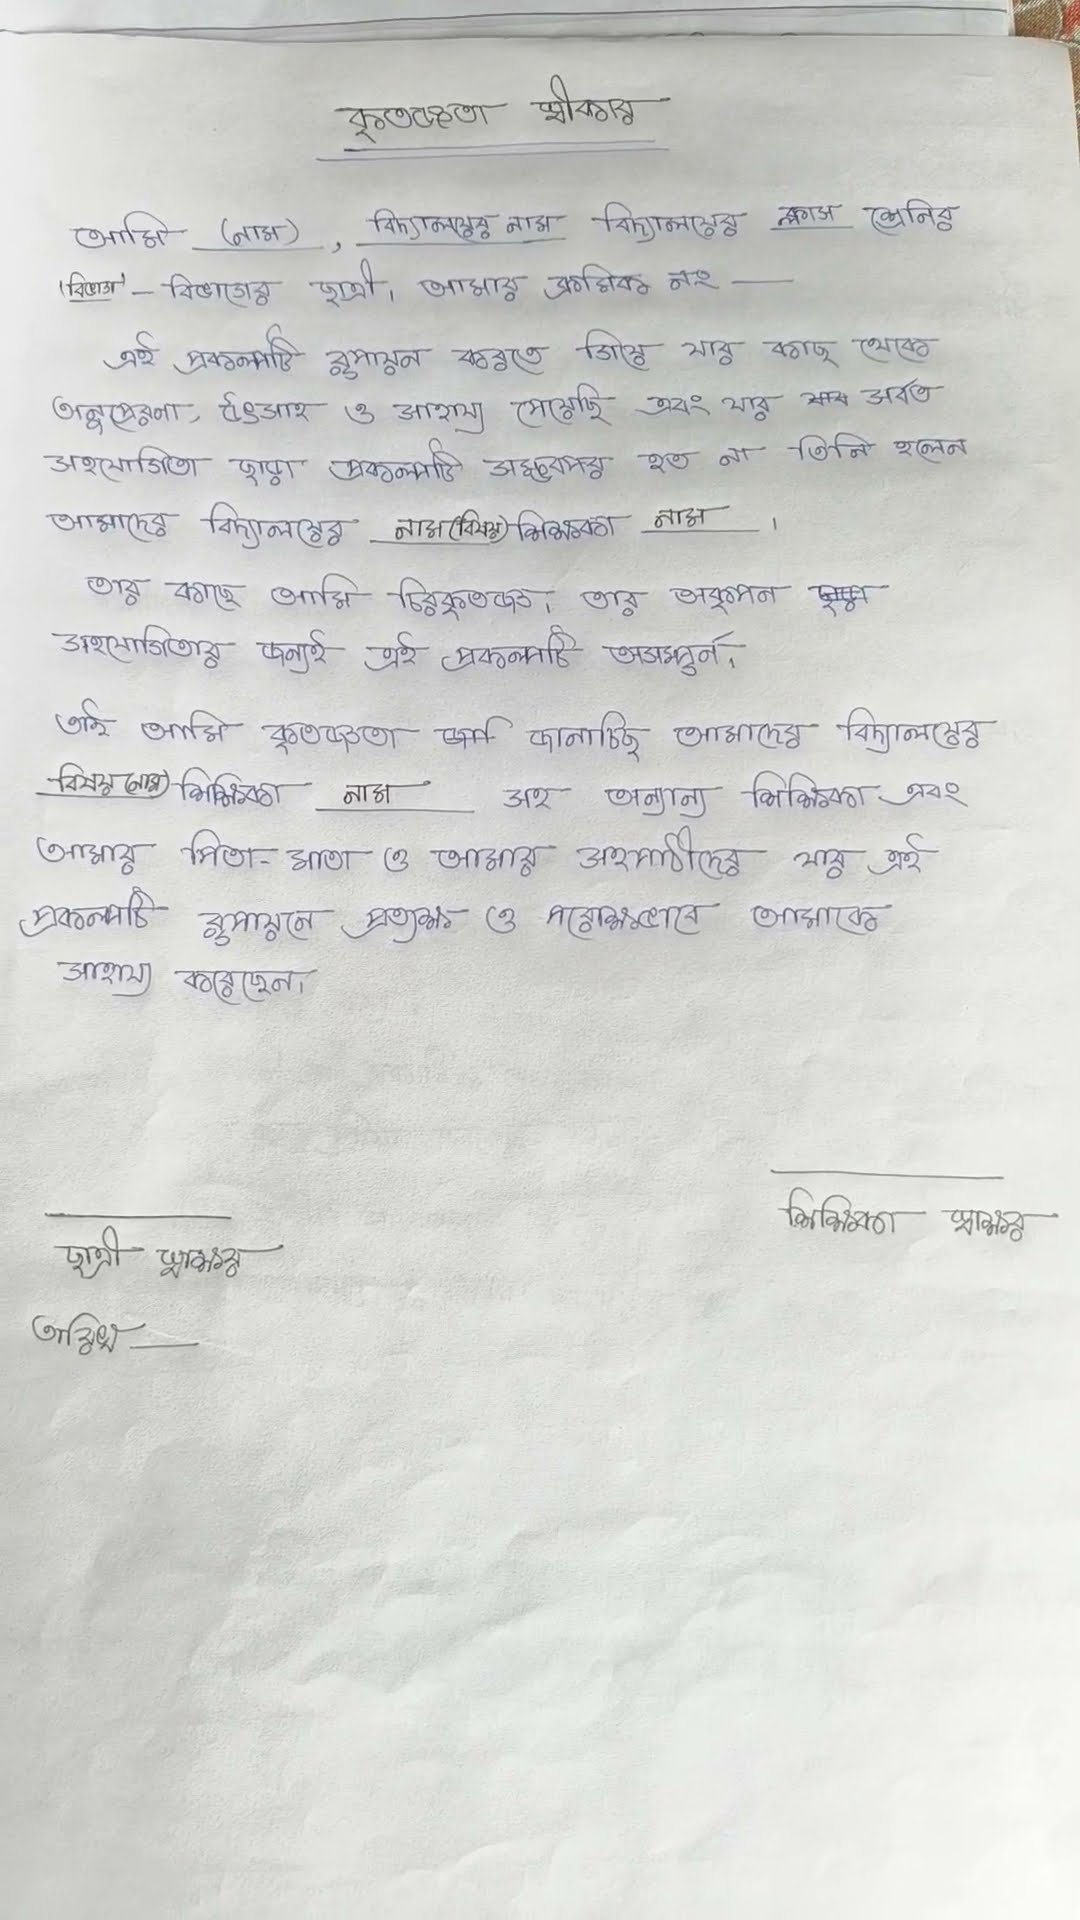 কৃতজ্ঞতা স্বীকার
আমি (নাম), বিদ্যালয়ের নাম বিদ্যালয়ের ক্লাস শ্রেনির
'বিভাগ' - বিভাগের ছাত্রী। আমার ক্রমিক নং —
এই প্রকল্পটি রুপায়ন করতে গিয়ে যার কাছ থেকে
অনুপ্রেরনা, উৎসাহ ও সাহায্য পেয়েছি এবং যার সর্বত
সহযোগিতা ছাড়া প্রকল্পটি সম্ভবপর হত না তিনি হলেন
আমাদের বিদ্যালয়ের নাম(বিষয়) শিক্ষিকা নাম ।
তার কাছে আমি চিরকৃতজ্ঞ। তার অকৃপন
সহযোগিতার জন্যই এই প্রকল্পটি সসম্পুর্ন।
তাই আমি কৃতজ্ঞতা জানাচ্ছি আমাদের বিদ্যালয়ের
বিষয় (নাম) শিক্ষিকা নাম সহ অন্যান্য শিক্ষিকা এবং
আমার পিতা-মাতা ও আমার সহপাঠীদের যার এই
প্রকল্পটি রুপায়নে প্রত্যক্ষ ও পরোক্ষভাবে আমাকে
সাহায্য করেছেন।
শিক্ষিকা স্বাক্ষর
ছাত্রী স্বাক্ষর
তারিখ —